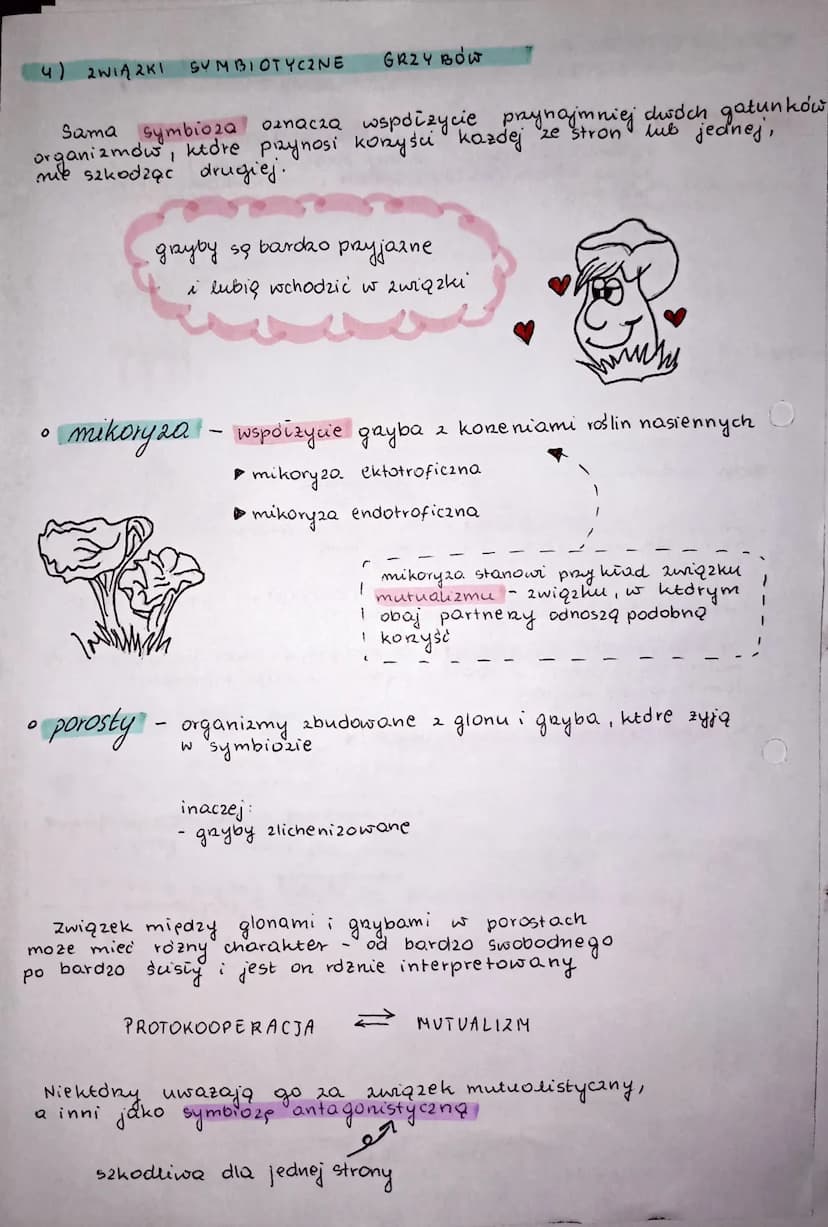 4) ZWIĄZKI SYMBIOTYCZNE GRZYBÓW
Sama symbioza oznacza współżycie przynajmniej dwóch gatunków
organizmów, które przynosi korzyści każdej ze stron lub jednej,
nie szkodząc drugiej.
grzyby są bardzo przyjazne
i lubią wchodzić w związki
mikoryza - współżycie grzyba z korzeniami roślin nasiennych
mikoryza ektotroficzna
mikoryza endotroficzna
mikoryza stanowi przykład związku
mutualizmu - związku, w którym
obaj partnerzy odnoszą podobną
korzyść
porosty - organizmy zbudowane z glonu i grzyba, które żyją
w symbiozie
inaczej:
- grzyby zlichenizowane
Związek między glonami i grzybami w porostach
może mieć różny charakter - od bardzo swobodnego
po bardzo ścisły i jest on różnie interpretowany
PROTOKOOPERACJA ⇄ MUTUALIZM
Niektórzy uważają go za związek mutualistyczny,
a inni jako symbiozę antagonistyczną
szkodliwa dla jednej strony